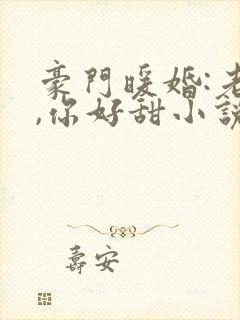 豪門暖婚:老
,你好甜小說
壽安